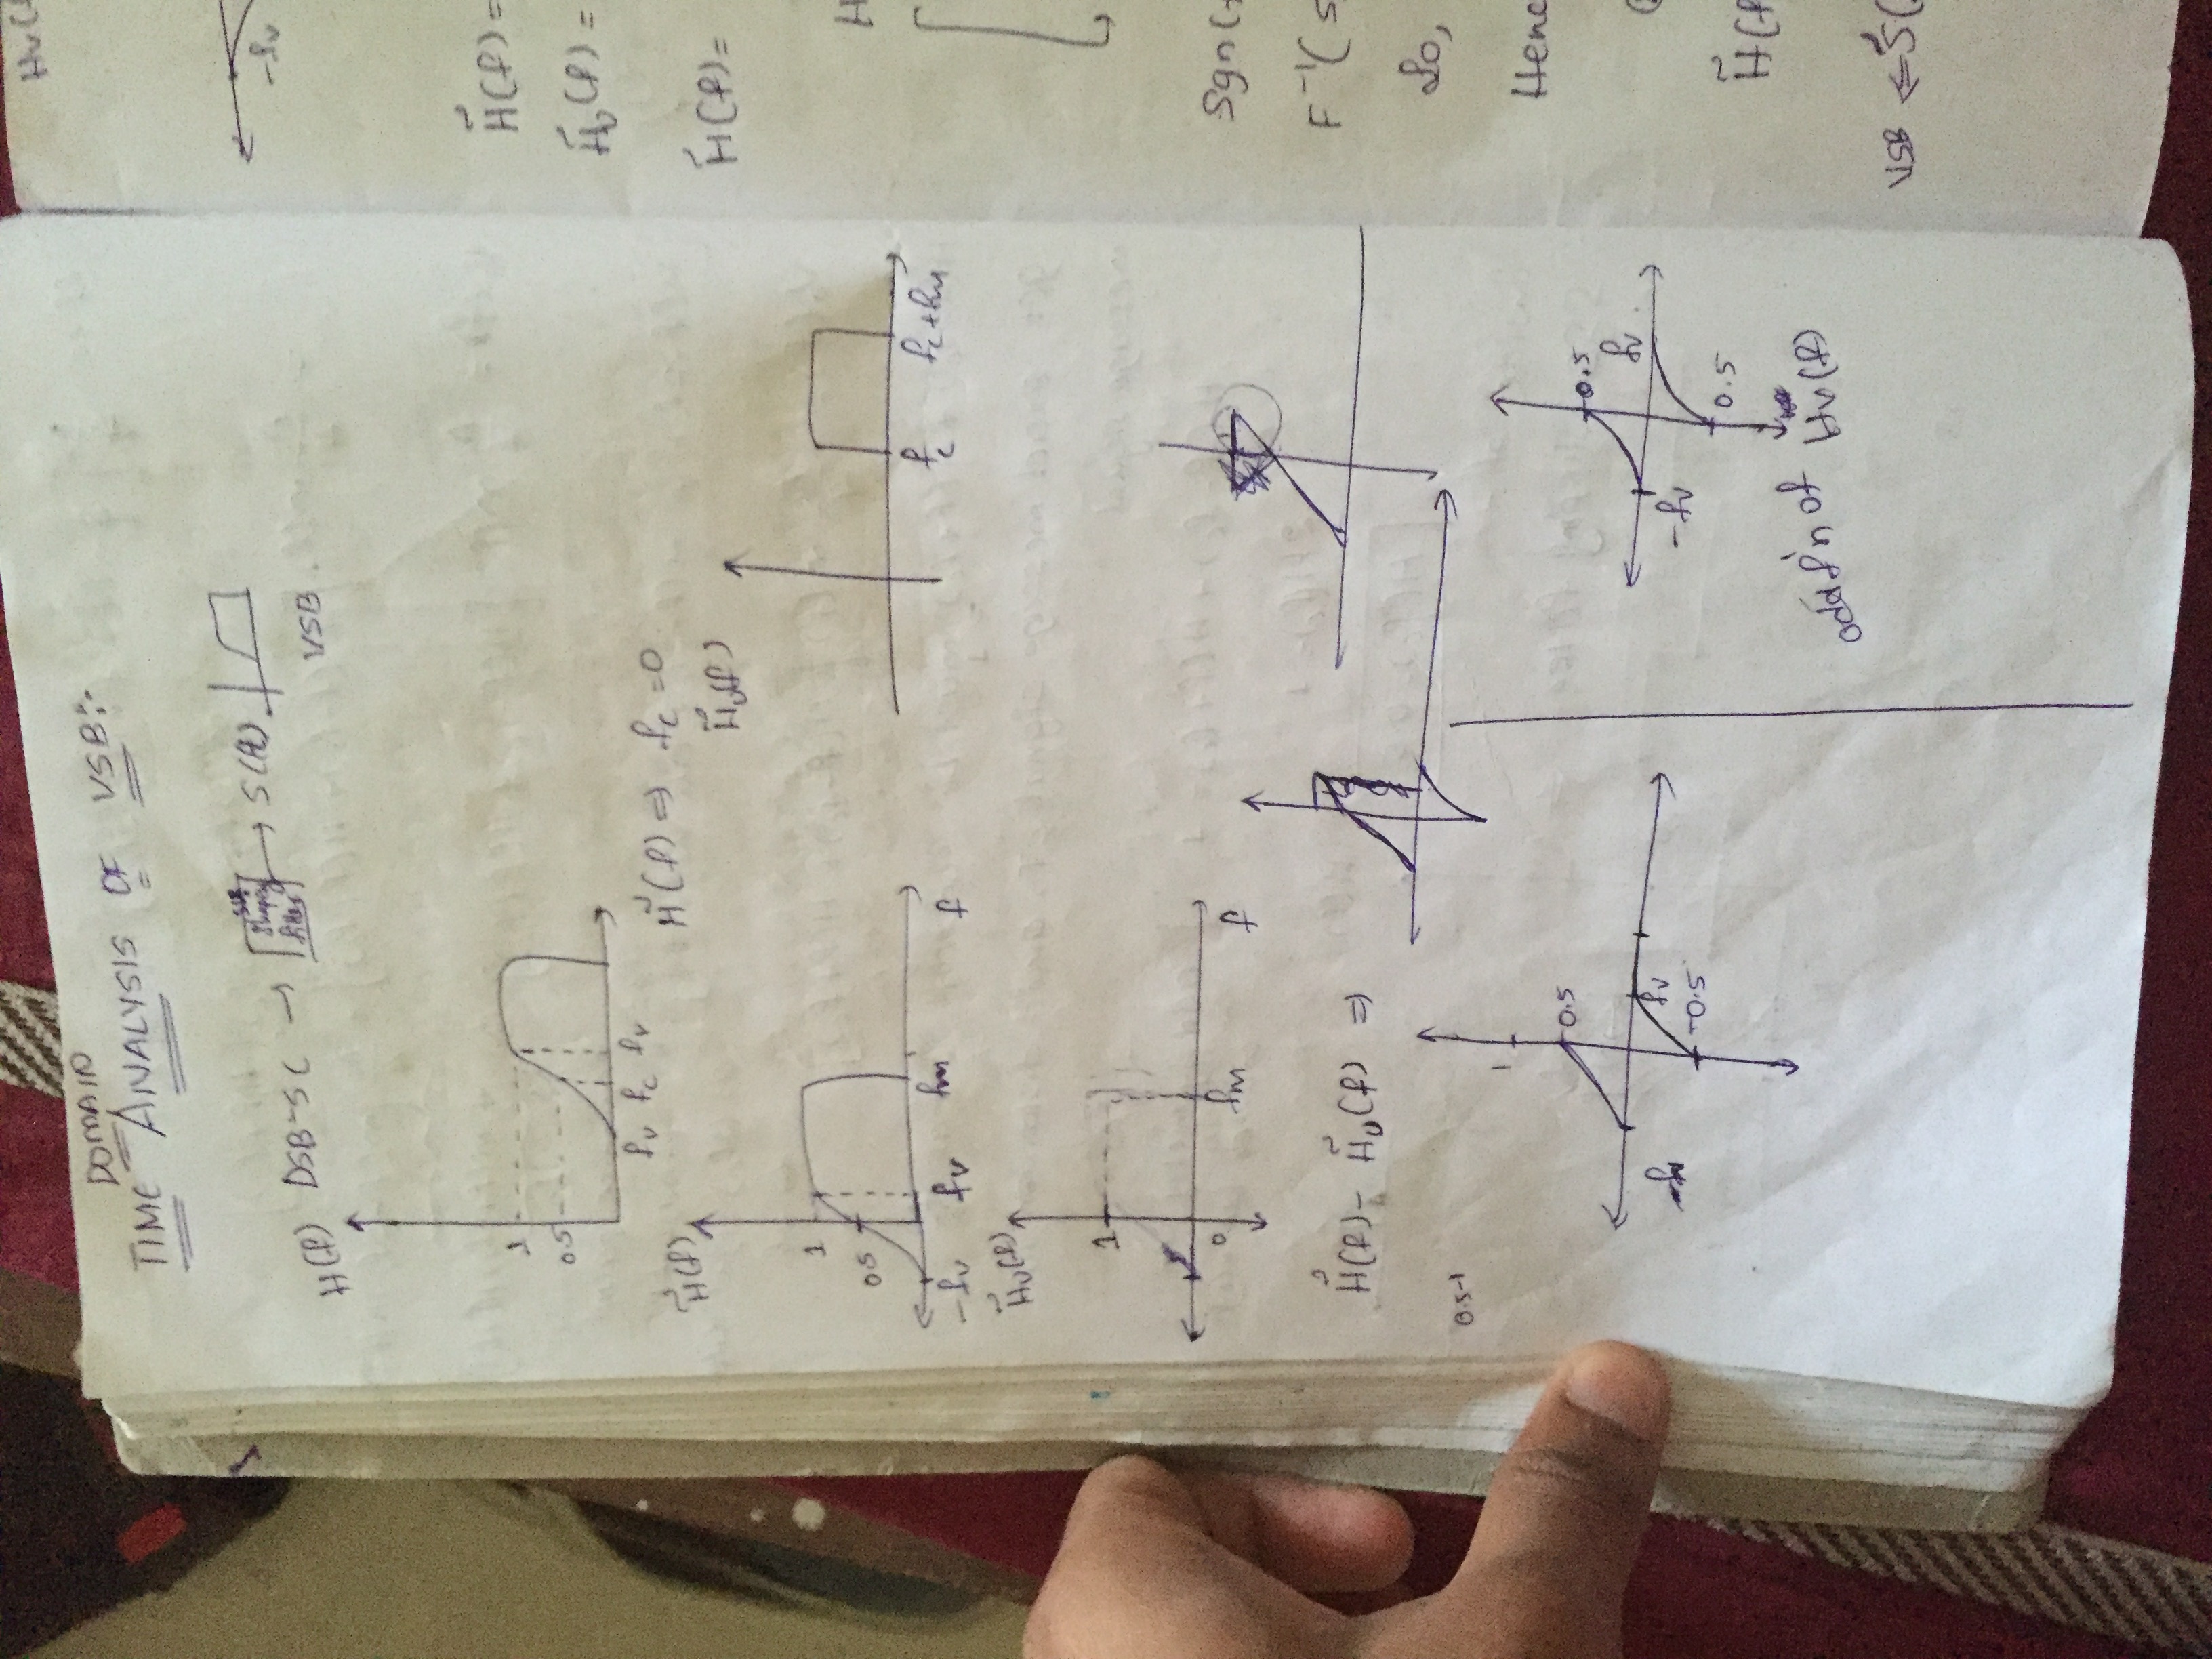 DOMAIN
TIME ANALYSIS OF VSB:-
DSB-SC → shaping filter → S(f)
VSB.
H(f)
1
0.5
fv fc fv
H̃(f) ⇒ fc = 0
H̃(f)
1
0.5
-fv fv fm f
H̃u(f)
fc fc+fm
H̃u(f)
1
0 fm f
H̃(f) - H̃u(f) ⇒
0.5-1
1
0.5
-fv fv
-0.5
0.5
fv
-fv
0.5
odd f'n of Hv(f)
Hv(
-fv
H̃(f) =
H̃v(f) =
H̃(f) =
H
Sgn(
F⁻¹(S
So,
Henc
H̃(f
VSB ⇐ S̃(